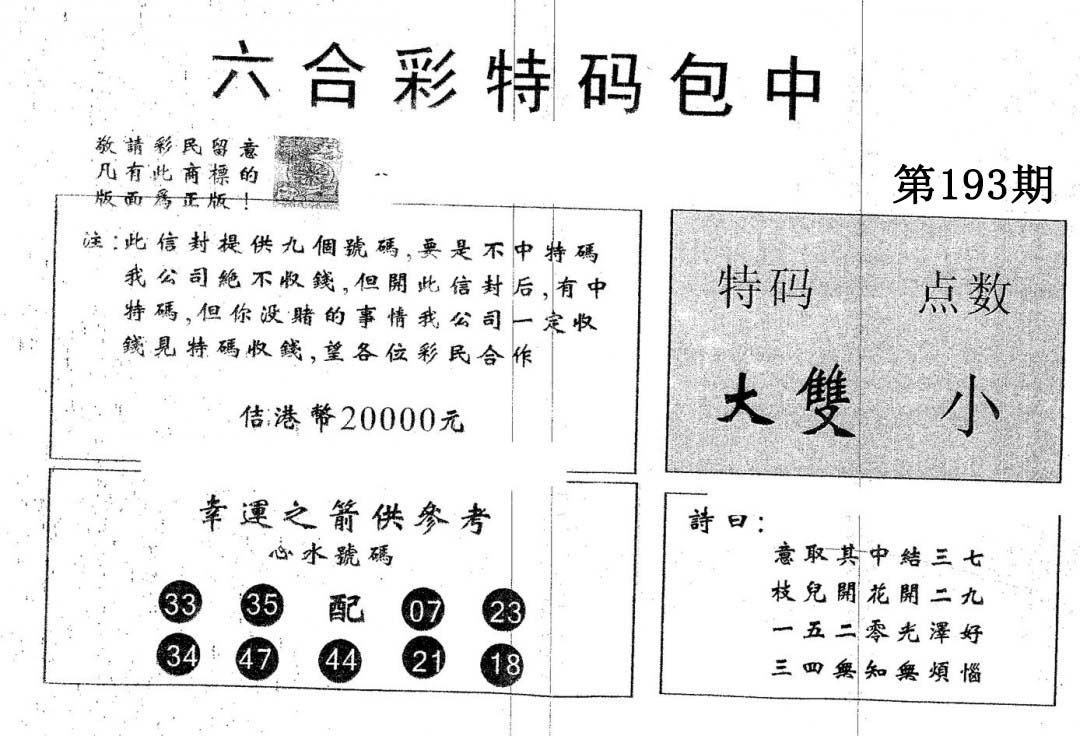 六合彩特码包中
敬請彩民留意
凡有此商標的
版面為正版！
第193期
注：此信封提供九個號碼,要是不中特碼
我公司絕不收錢,但開此信封后,有中
特碼,但你没賭的事情我公司一定收
錢見特碼收錢,望各位彩民合作
佶港幣20000元
特码
点数
大雙
小
幸運之箭供參考
心水號碼
33 35 配 07 23
34 47 44 21 18
詩曰：
意取其中結三七
枝兒開花開二九
一五二零光澤好
三四無知無煩惱